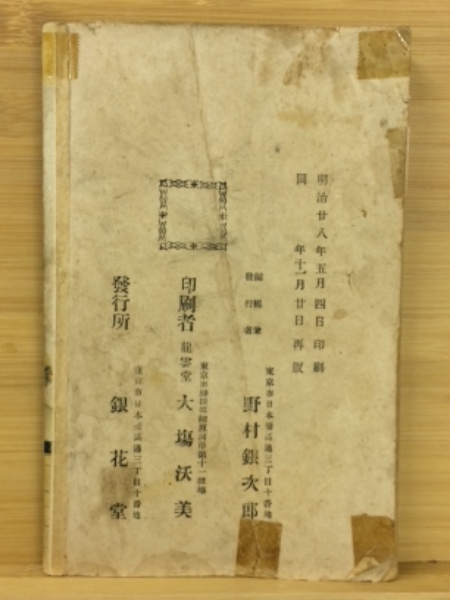 明治廿八年五月四日印刷
同 年十一月廿日再版
編輯兼
發行者
東京市日本橋區通三丁目十番地
野村銀次郎
印刷者
龍雲堂
大塩沃美
發行所
東京市日本橋區通三丁目十番地
銀花堂